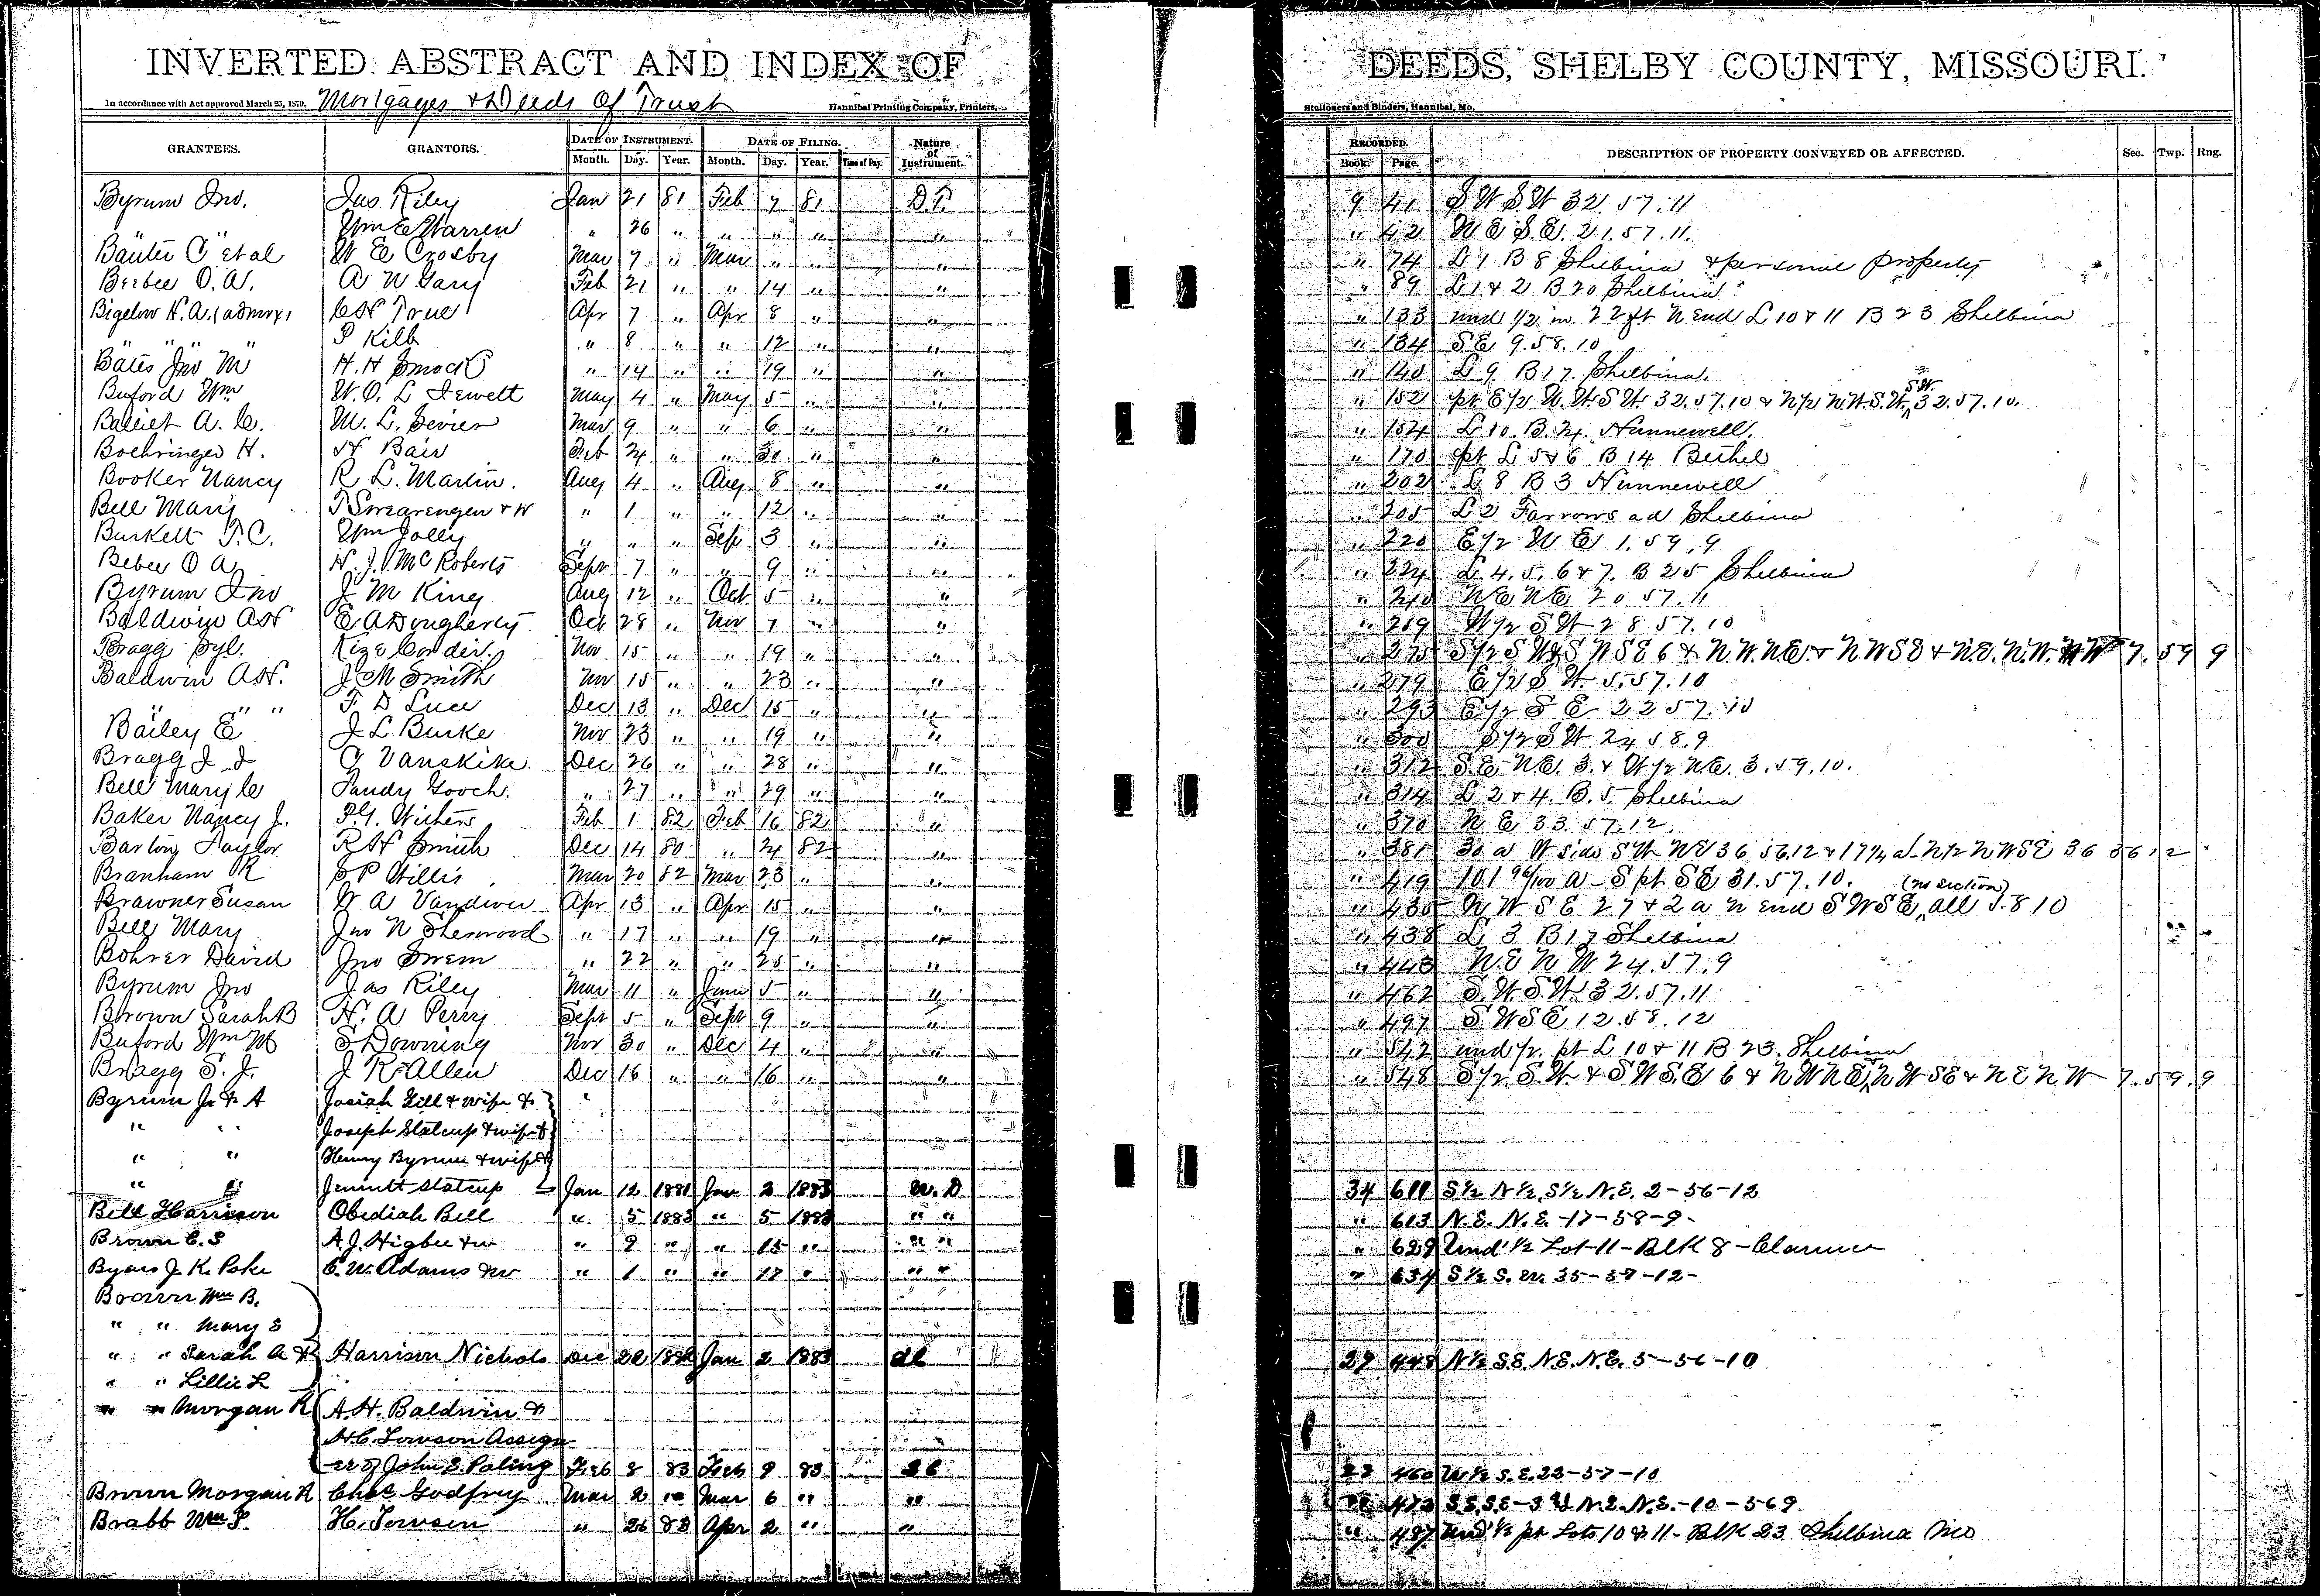 INVERTED ABSTRACT AND INDEX OF DEEDS, SHELBY COUNTY, MISSOURI.
In accordance with Act approved March 25, 1870. Mortgages & Deeds Of Trust Hannibal Printing Company, Printers, Stationers and Binders, Hannibal, Mo.
GRANTEES. GRANTORS. DATE OF INSTRUMENT. DATE OF FILING. Nature of Instrument. RECORDED. DESCRIPTION OF PROPERTY CONVEYED OR AFFECTED. Sec. Twp. Rng.
Month. Day. Year. Month. Day. Year. Time of Day. Book. Page.
Byrum Jno. Jas Riley Jan 21 81 Feb 7 81 D.T. 9 41 S W S W 32.57.11
" " Wm E Warren " 26 " " " " " " 42 N E S.E. 21.57.11.
Bauter C et al W E Crosby Mar 7 " Mar " " " " 74 L 1 B 8 Shelbina & personal property
Beebee O. A. A W Gary Feb 21 " " 14 " " " 89 L 1 & 2 B 20 Shelbina
Bigelow H. A. (admrx) C H True Apr 7 " Apr 8 " " " 133 und 1/2 in 22 ft N End L 10 & 11 B 23 Shelbina
" " " P Kilb " 8 " " 12 " " " 134 S E 9.58.10
Bates Jno M H. H Smock " 14 " " 19 " " " 140 L 9 B 17. Shelbina.
Buford Wm W. O. L Jewett May 4 " May 5 " " " 152 pt E 1/2 N.W S W 32.57.10 & N 1/2 N.W. S.W. S.W. 32.57.10.
Balliet A. C. M. L. Sevier Mar 9 " " 6 " " " 154 L 10. B. 24. Hunnewell.
Boehringer H. H Bair Feb 24 " " 30 " " " 170 pt L 5 & 6 B 14 Bethel
Booker Nancy R L. Martin. Aug 4 " Aug 8 " " " 202 L 8 B 3 Hunnewell
Bell Mary T Swearengen & W " 1 " " 12 " " " 205 L 2 Farrows ad Shelbina
Burkett T. C. Wm Jolly " " " Sep 3 " " " 220 E 1/2 N E 1.59.9
Bebee O A H. J. McRoberts Sept 7 " " 9 " " " 224 L 4. 5. 6 & 7. B 25 Shelbina
Byrum Jno J M King Aug 12 " Oct 5 " " " 240 N E N E 20 57.11
Baldwin A H E A Dougherty Oct 28 " Nov 7 " " " 259 W 1/2 S W 28 57.10
Bragg Syl. Kize Corder. Nov 15 " " 19 " " " 275 S 1/2 S W & S W S E 6 & N.W. N.E. & N W S E & N.E. N.W. 7. 59 9
Baldwin A H. J M Smith Nov 15 " " 23 " " " 279 E 1/2 S W. 5.57.10
" " " F. D Luce Dec 13 " Dec 15 " " " 293 E 1/2 S E 22 57.10
Bailey E J L Burke Nov 23 " " 19 " " " 300 S 1/2 S W 24 58.9
Bragg J. J G Vanskike Dec 26 " " 28 " " " 312 S E N E. 3. & W 1/2 N E. 3.59.10.
Bell Mary C Sandy Gooch. " 27 " " 29 " " " 314 L 2 & 4. B. 5. Shelbina
Baker Nancy J. P. G. Withers Feb 1 82 Feb 16 82 " " 370 N E 33.57.12.
Barton Taylor R H Smith Dec 14 80 " 24 82 " " 381 30 a W side S W N E 36 56.12 & 17 1/2 a N 1/2 N W S E 36 56 12
Branham R S P Willis Mar 20 82 Mar 23 " " " 419 101 96/100 a S pt S E 31.57.10.
Brawner Susan W A Vandiver Apr 13 " Apr 15 " " " 435 N W S E 27 & 2 a N End S W S E, (no section) all 58 10
Bell Mary Jno N Sherwood " 17 " " 19 " " " 438 L 3 B 17 Shelbina
Bohrer David Jno Swem " 22 " " 25 " " " 443 N.E N W 24.57.9
Byrum Jno Jas Riley Mar 11 " June 5 " " " 462 S.W. S.W. 32.57.11
Brown Sarah B H. A Perry Sept 5 " Sept 9 " " " 497 S W S E 12.58.12
Buford Wm M S Downing Nov 30 " Dec 4 " " " 542 und 1/2 pt L 10 & 11 B 23. Shelbina
Bragg S. J. J R Allen Dec 16 " " 16 " " " 548 S 1/2 S.W & S W S.E 6 & N W N E & N W S E & N E N W 7.59.9
Byrum J. & A Josiah Gill & wife &
" " Joseph Statcup & wife &
" " Henry Byrum & wife &
" " Jennett Statcup Jan 12 1881 Jan 2 1883 W. D 34 611 S 1/2 N 1/2, S 1/2 N.E. 2-56-12
Bell Harrison Obediah Bell " 5 1883 " 5 1883 " " " 613 N.E. N.E.-17-58-9-
Brown C. S A. J. Higbee & w " 9 " " 15 " " " " 629 Und 1/2 Lot-11-Blk 8-Clarence
Byars J. K. Polk C. W. Adams & w " 1 " " 17 " " " " 634 S 1/2 S. W. 35-57-12-
Brown Wm B.
" " Mary E
" " Sarah A & Harrison Nichols Dec 22 1882 Jan 2 1883 27 448 N 1/2 S.E. N.E. N.E. 5-56-10
" " Lillie L
" " Morgan R A. H. Baldwin &
H. C. Towson Assign
-ee of John S. Poling Feb 8 83 Feb 9 83 27 460 W 1/2 S. E. 22-57-10
Brown Morgan R Chas Godfrey Mar 2 " Mar 6 " " " 473 S.E. S.E-3 & N.E. N.E.-10-569
Brabb Wm P. H. Towson " 26 83 Apr 2 " " " 487 Und 1/2 pt Lots 10 & 11-Blk 23 Shelbina Mo